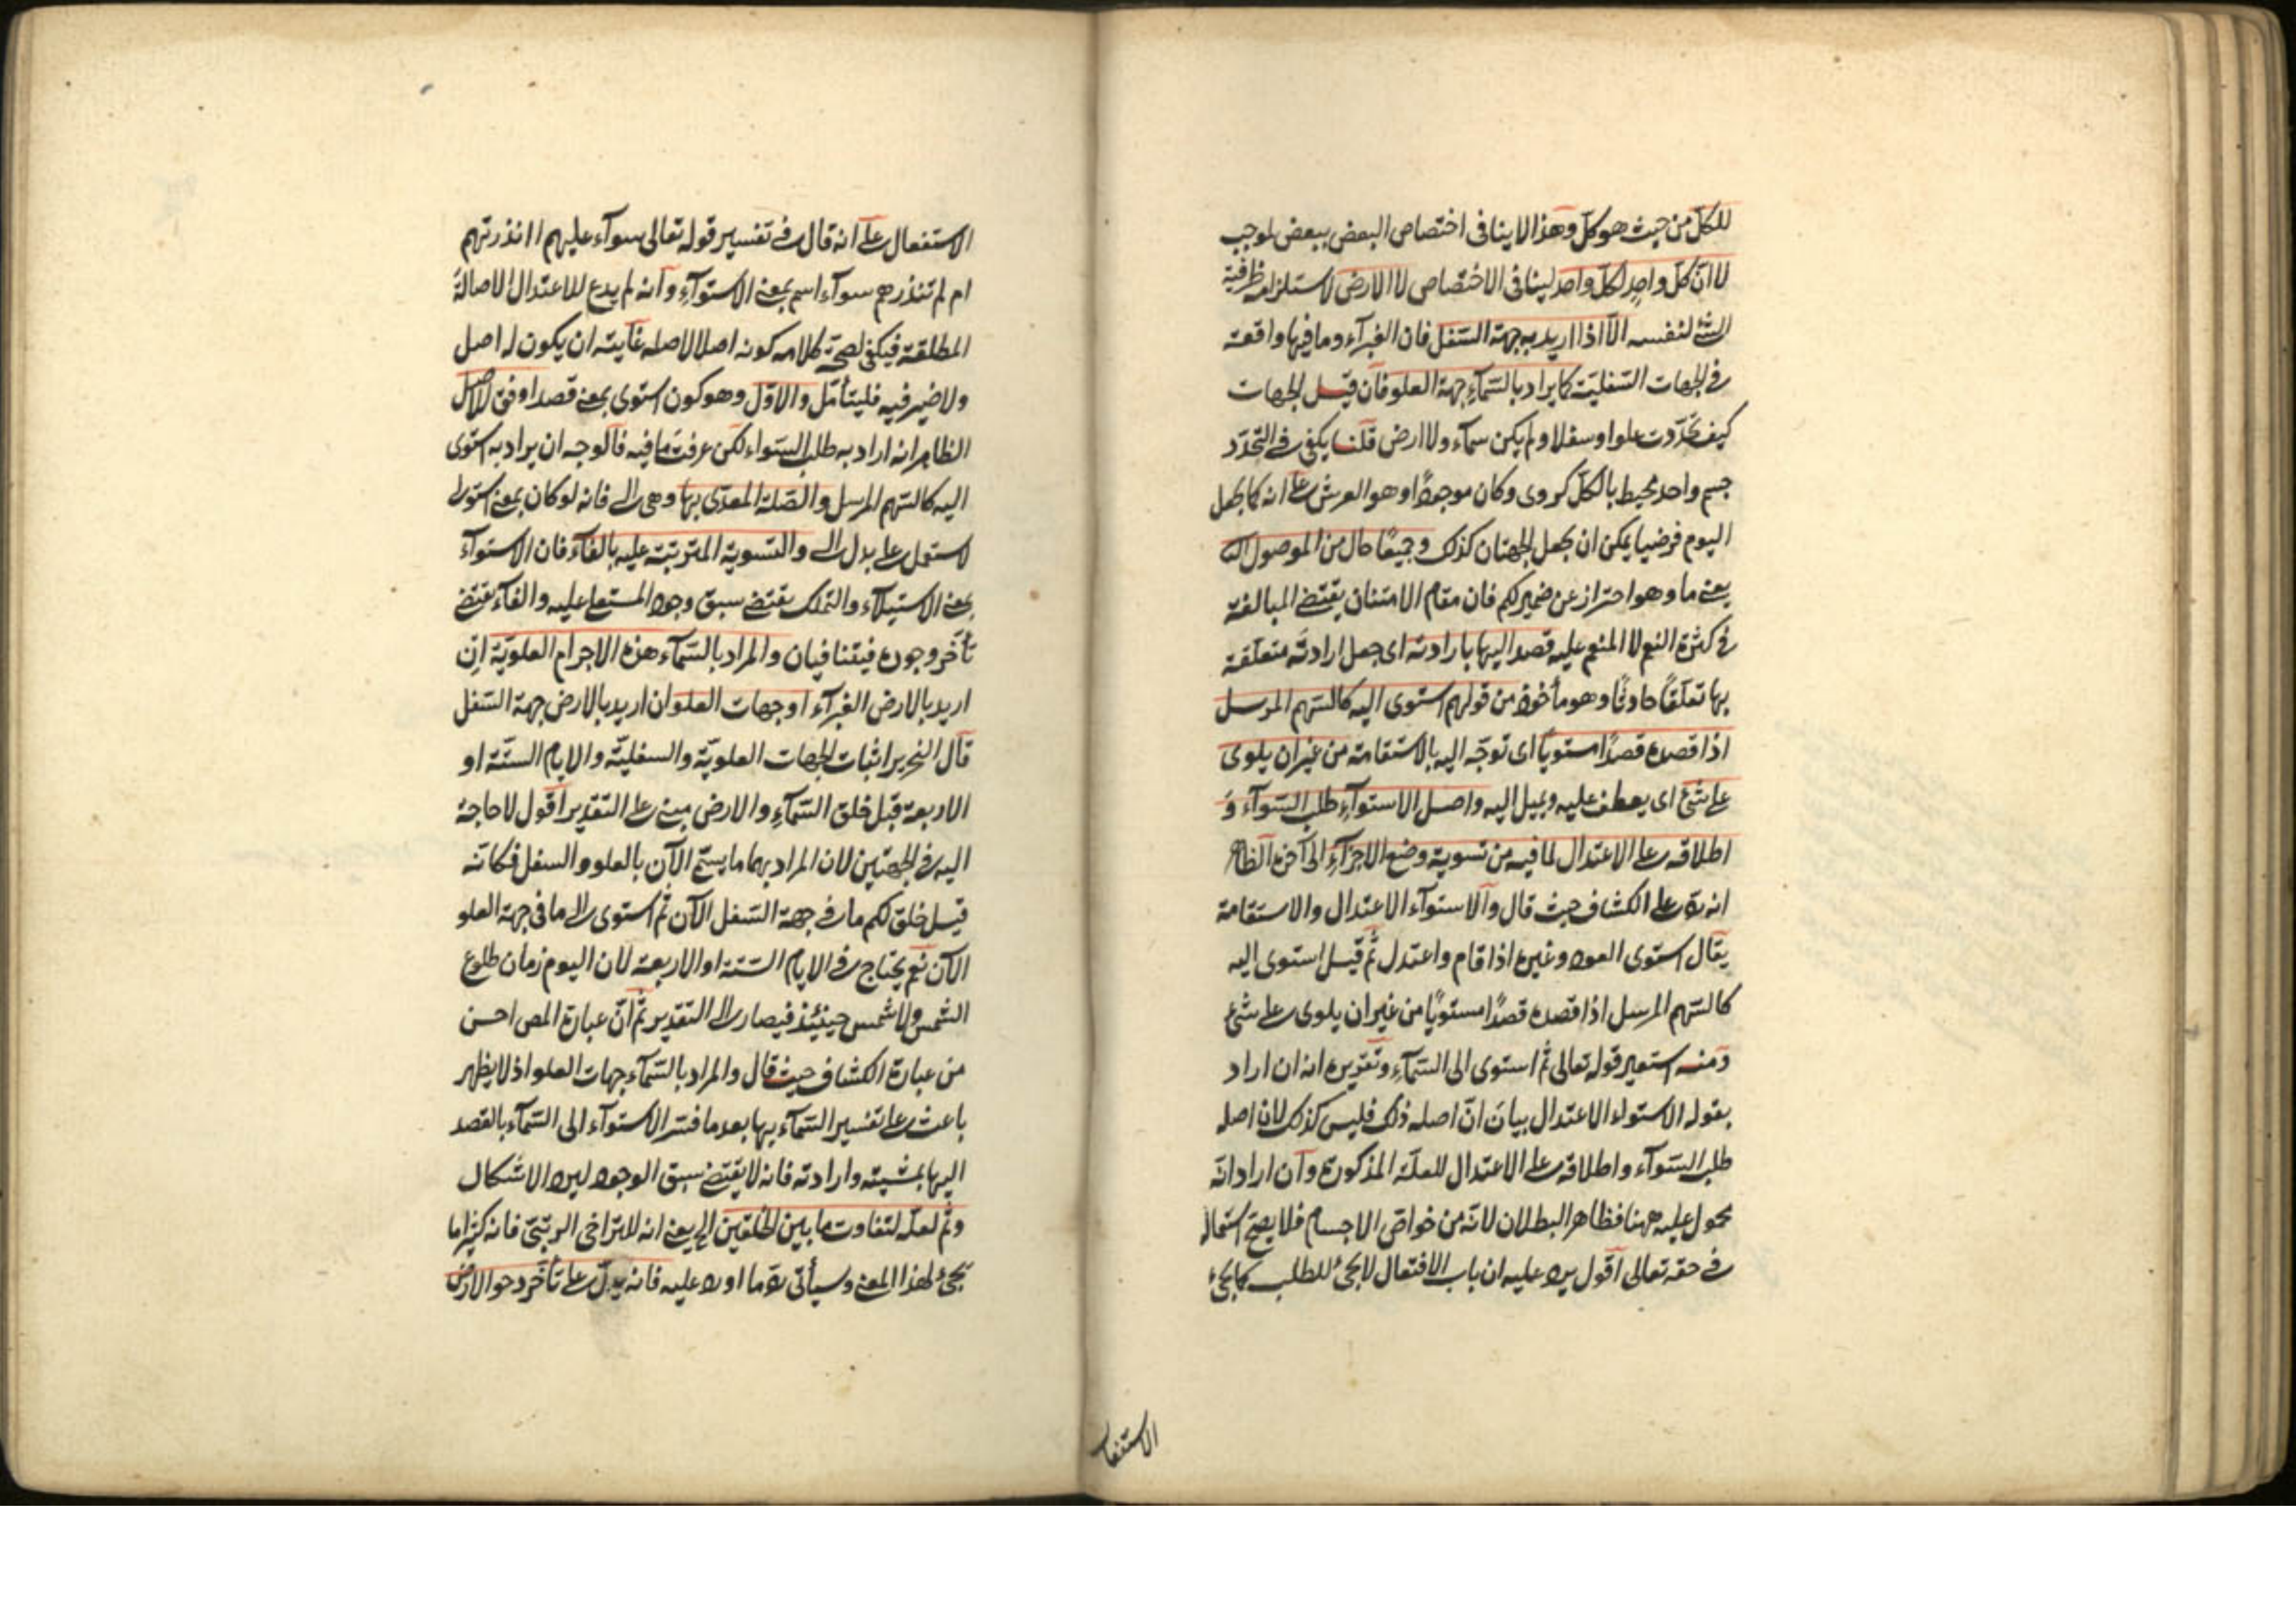 للكل من حيث هو كل وهذا لا ينافى اختصاص البعض ببعض لموجب
لا ان كل واحد لكل واحد لينافى الاختصاص لا الارض لاستلزامه ظرفية
الشئ لنفسه الا اذا اريد به جهة السفل فان الغبرآء وما فيها واقعة
فى الجهات السفلية كما يراد بالسمآء جهة العلو فان قيل الجهات
كيف تحددت علوا وسفلا ولم يكن سمآء ولا ارض قلنا يكفى فى التحدد
جسم واحد محيط بالكل كروى وكان موجودا وهو العرش على انه كما جعل
اليوم فرضيا يمكن ان يجعل الجهتان كذلك وجميعا حال من الموصول
يعنى ما وهو احتراز عن ضمير لكم فان مقام الامتنان يقتضى المبالغة
فى كثرة النعم لا المنعم عليه قصد اليها بارادته اى جعل ارادته متعلقة
بها تعلقا حادثا وهو مأخوذ من قولهم استوى اليه كالسهم المرسل
اذا قصده قصدا مستويا اى توجه اليه بالاستقامة من غير ان يلوى
على شئ اى يعطف عليه ويميل اليه واصل الاستوآء طلب السوآء و
اطلاقه على الاعتدال لما فيه من تسوية وضع الاجزآء الى آخره الظاهر
انه رد على الكشاف حيث قال والاستوآء الاعتدال والاستقامة
يقال استوى العود وغيره اذا قام واعتدل ثم قيل استوى اليه
كالسهم المرسل اذا قصده قصدا مستويا من غير ان يلوى على شئ
ومنه استعير قوله تعالى ثم استوى الى السمآء وتقريره انه ان اراد
بقوله الاستواء الاعتدال بيان ان اصله ذلك فليس كذلك لان اصله
طلب السوآء واطلاقه على الاعتدال للعلة المذكورة وان اراد انه
محمول عليه ههنا فظاهر البطلان لانه من خواص الاجسام فلا يصح استعماله
فى حقه تعالى اقول يرد عليه ان باب الافتعال لا يجئ للطلب كما يجئ
الاستفعال
الاستفعال على انه قال فى تفسير قوله تعالى سوآء عليهم اانذرتهم
ام لم تنذرهم سوآء اسم بمعنى الاستوآء وانه لم يدع للاعتدال الاصالة
المطلقة فيكفى لصحة كلامه كونه اصلا لاصله غايته ان يكون له اصل
ولا ضير فيه فليتأمل والاول وهو كون استوى بمعنى قصد اوفق للاصل
الظاهر انه اراد به طلب السواء لكن عرفت ما فيه فالوجه ان يراد به استوى
اليه كالسهم المرسل والصلة المعدى بها وهى الى فانه لو كان بمعنى استولى
لاستعمل على بدل الى والتسوية المترتبة عليه بالفآء فان الاستوآء
بمعنى الاستيلآء والتملك يقتضى سبق وجود المستعلى عليه والفآء يقتضى
تأخر وجوده فيتنافيان والمراد بالسمآء هذه الاجرام العلوية ان
اريد بالارض الغبرآء او جهات العلو ان اريد بالارض جهة السفل
قال النحرير اثبات الجهات العلوية والسفلية والايام الستة او
الاربعة قبل خلق السمآء والارض مبنى على التقدير اقول لا حاجة
اليه فى الجهتين لان المراد بهما ما يسمى الآن بالعلو والسفل فكانه
قيل خلق لكم ما فى جهة السفل الآن ثم استوى الى ما فى جهة العلو
الآن نعم يحتاج فى الايام الستة او الاربعة لان اليوم زمان طلوع
الشمس ولا شمس حينئذ فيصار الى التقدير ثم ان عبارة المص احسن
من عبارة الكشاف حيث قال والمراد بالسمآء جهات العلو اذ لا يظهر
باعث على تفسير السمآء بها بعد ما فسر الاستوآء الى السمآء بالقصد
اليها بمشيته وارادته فانه لا يقتضى سبق الوجود ليرد الاشكال
وثم لعله لتفاوت ما بين الخلقين الخ يعنى انه للتراخى الرتبى فانه كثيرا ما
يجئ لهذا المعنى وسيأتى رد ما اورد عليه فانه يدل على تأخر دحو الارض